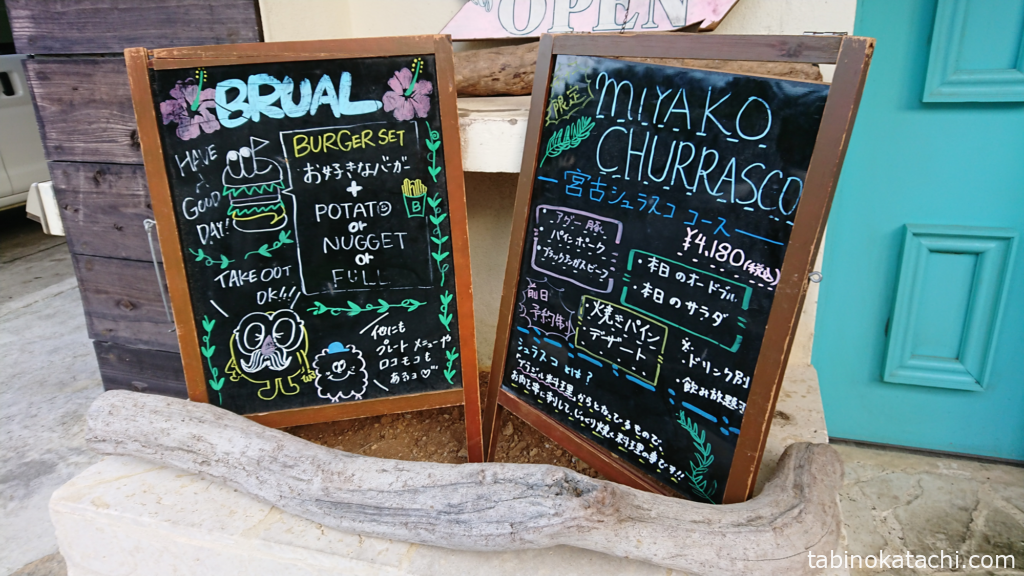 OPEN
BRUAL
HAVE
A
GOOD
DAY!
BURGER SET
お好きなバーガー
+
POTATO
or
NUGGET
or
FULL
TAKE OUT
OK!!
他にも
プレートメニューや
ロコモコも
あるヨ
限定
MIYAKO
CHURRASCO
宮古シュラスコ コース
¥4,180(税込)
・アグー豚
・パインポーク
・ブラックアンガスビーフ
・本日のオードブル
・本日のサラダ
前日
予約制
・焼きパイン
・デザート
&
・ドリンク別
・飲み放題
シュラスコとは?
ブラジル料理
お肉を串に刺して、じっくり焼く料理の事です!!
tabinokatachi.com